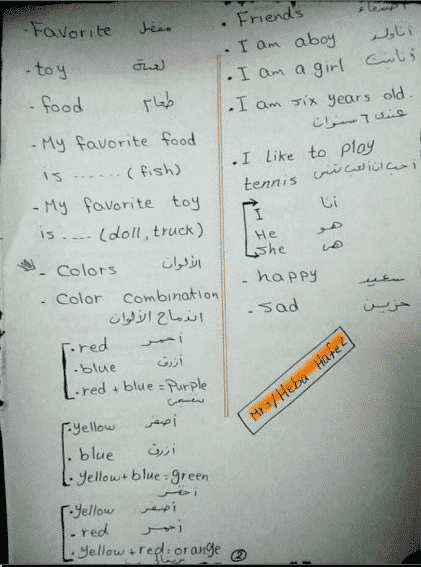 - Favorite مفضل
- toy لعبة
- food طعام
- My favorite food
is ...... (fish)
- My favorite toy
is .... (doll, truck)
- Colors الألوان
- Color combination
اندماج الألوان
. red أحمر
. blue أزرق
. red + blue = Purple
بنفسجى
. Yellow أصفر
. blue أزرق
. Yellow + blue = green
أخضر
. Yellow أصفر
. red أحمر
. Yellow + red = orange
برتقالى
2
. Friends أصدقاء
. I am aboy أنا ولد
. I am a girl أنا بنت
. I am six years old.
عندى ٦ سنوات
. I like to play
tennis أحب ان ألعب تنس
I أنا
He هو
She هى
- happy سعيد
. sad حزين
Mrs/Heba Hafez